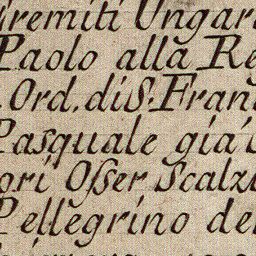 Eremiti Ungar
Paolo alla Re
Ord. di S. Fran
Pasquale già
ori Osser Scalzi
Pellegrino de